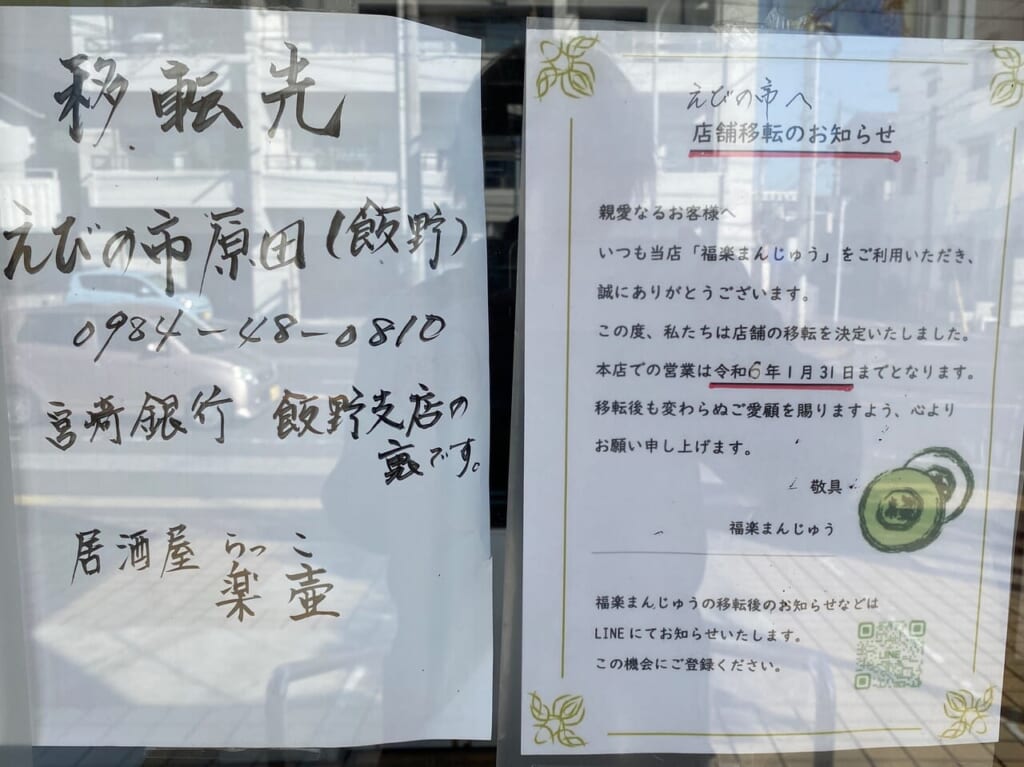 移転先
えびの市原田(飯野)
0984-48-0810
宮崎銀行 飯野支店の
裏です。
居酒屋 らっこ
楽壺
えびの市へ
店舗移転のお知らせ
親愛なるお客様へ
いつも当店「福楽まんじゅう」をご利用いただき、
誠にありがとうございます。
この度、私たちは店舗の移転を決定いたしました。
本店での営業は令和6年1月31日までとなります。
移転後も変わらぬご愛顧を賜りますよう、心より
お願い申し上げます。
敬具
福楽まんじゅう
福楽まんじゅうの移転後のお知らせなどは
LINEにてお知らせいたします。
この機会にご登録ください。
LINE